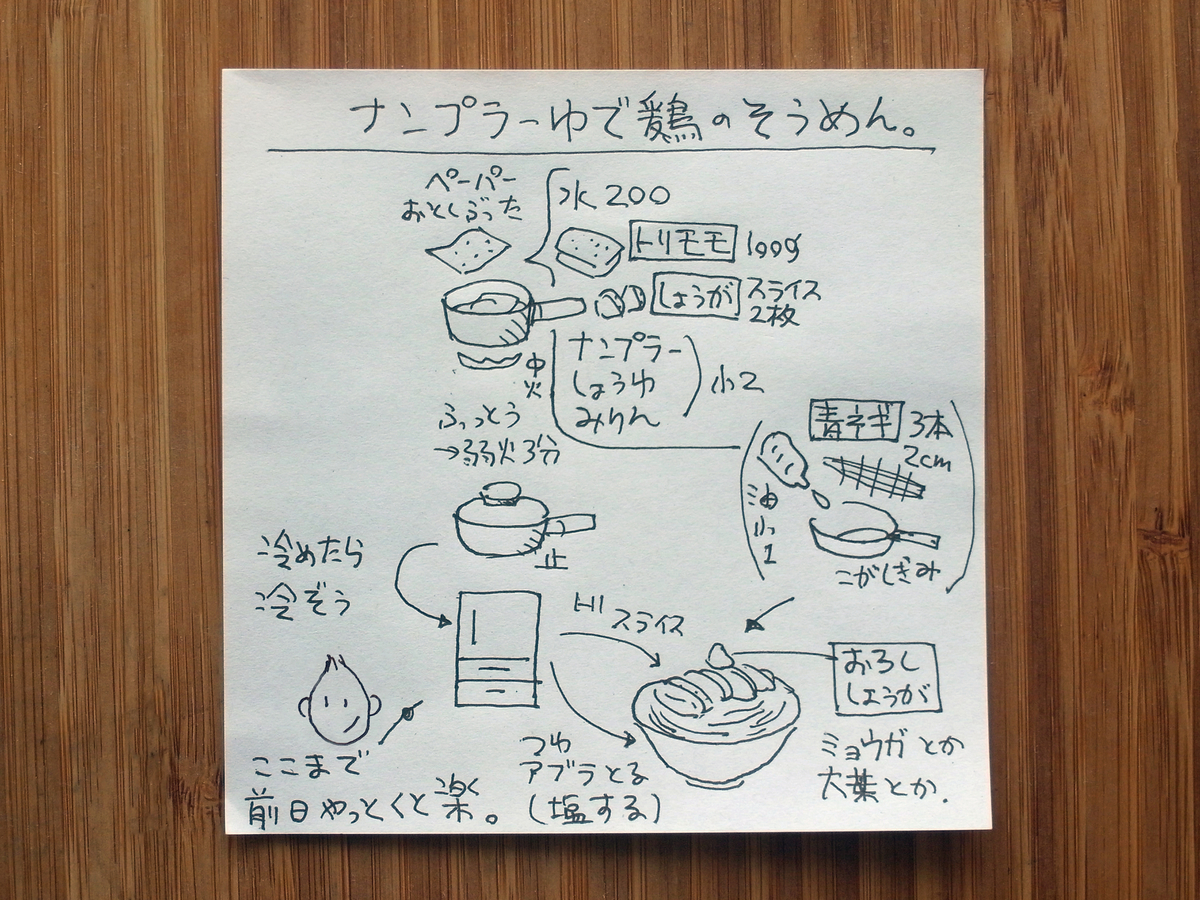 ナンプラーゆで鶏のそうめん。
ペーパー
おとしぶった
水 200
トリモモ 100g
しょうが スライス
2枚
ナンプラー
しょうゆ
みりん
小2
中
火
ふっとう
→弱火3分
青ネギ 3本
2cm
油
小
1
こがしぎみ
止
冷めたら
冷ぞう
トリ
スライス
おろし
しょうが
ミョウガとか
大葉とか.
つゆ
アブラとる
(塩する)
ここまで
前日やっとくと楽。